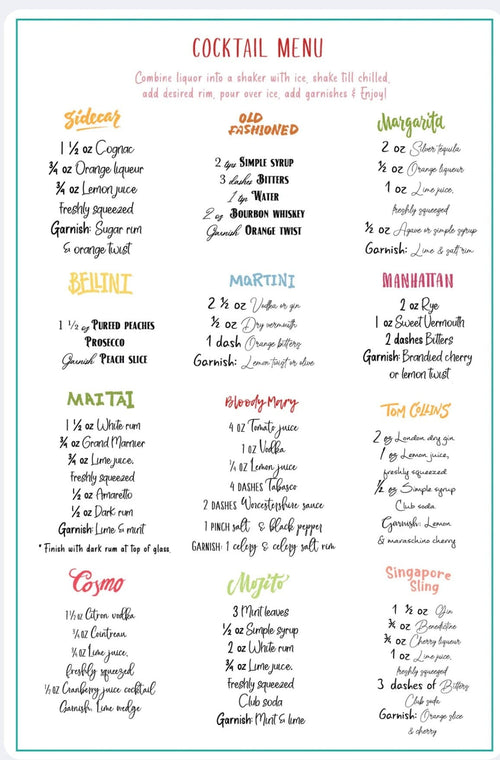 COCKTAIL MENU
Combine liquor into a shaker with ice, shake till chilled,
add desired rim, pour over ice, add garnishes & Enjoy!
Sidecar
1 ½ oz Cognac
¾ oz Orange liqueur
¾ oz Lemon juice
freshly squeezed
Garnish: Sugar rim
& orange twist
OLD
FASHIONED
2 tsps SIMPLE SYRUP
3 dashes BITTERS
1 tsp WATER
2 oz BOURBON WHISKEY
Garnish ORANGE TWIST
Margarita
2 oz Silver tequila
½ oz Orange liqueur
1 oz Lime juice,
freshly squeezed
½ oz Agave or simple syrup
Garnish: Lime & salt rim
BELLINI
1 ½ oz PUREED PEACHES
PROSECCO
Garnish PEACH SLICE
MARTINI
2 ½ oz Vodka or gin
½ oz Dry vermouth
1 dash Orange bitters
Garnish: Lemon twist or olive
MANHATTAN
2 oz Rye
1 oz Sweet Vermouth
2 dashes Bitters
Garnish: Brandied cherry
or lemon twist
MAI TAI
1 ½ oz White rum
¾ oz Grand Marnier
¾ oz Lime juice,
freshly squeezed
½ oz Amaretto
½ oz Dark rum
Garnish: Lime & mint
* Finish with dark rum at top of glass.
Bloody Mary
4 oz Tomato juice
1 oz Vodka
oz Lemon juice
4 DASHES Tabasco
2 DASHES Worcestershire sauce
1 PINCH salt & black pepper
GARNISH: 1 celery & celery salt rim
TOM COLLINS
2 oz London dry gin
1 oz Lemon juice,
freshly squeezed
½ oz Simple syrup
Club soda
Garnish: Lemon
& maraschino cherry
Cosmo
1 ½ oz Citron vodka
oz Cointreau,
oz Lime juice,
freshly squeezed
oz Cranberry juice cocktail
Garnish: Lime wedge
Mojito
3 Mint leaves
½ oz Simple syrup
2 oz White rum
¾ oz Lime juice,
freshly squeezed
Club soda
Garnish: Mint & lime
Singapore
Sling
1 ½ oz Gin
¾ oz Benedictine
¾ oz Cherry liqueur
1 oz Lime juice,
freshly squeezed
3 dashes of Bitters
Club soda
Garnish: Orange slice
& cherry